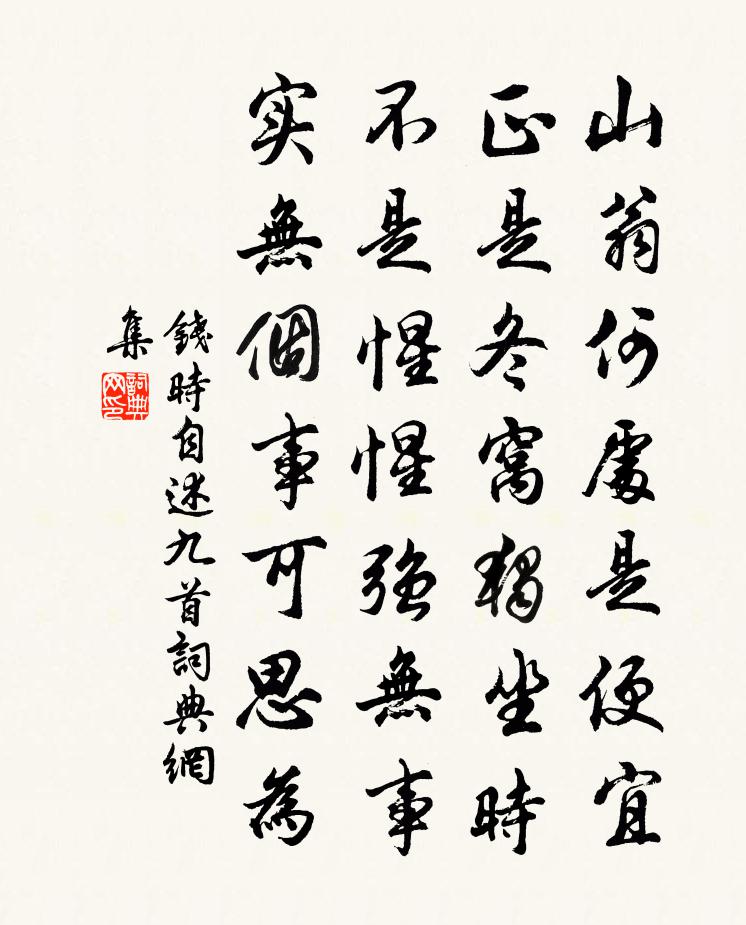 山翁何處是便宜
正是冬窩獨坐時
不是惺惺強無事
实無個事可思為
錢時自述九首詞典網
集
詞典
网印